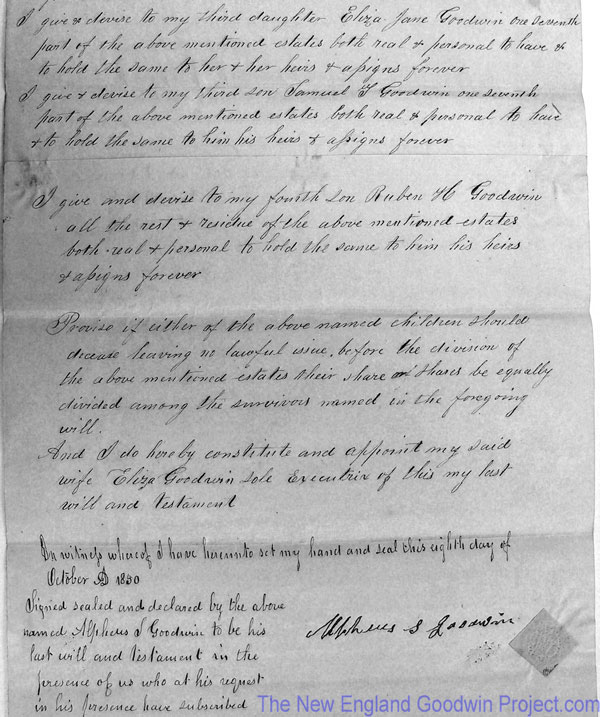 I give & devise to my third daughter Eliza Jane Goodwin one seventh
part of the above mentioned estates both real & personal to have &
to hold the same to her & her heirs & assigns forever
I give & devise to my third son Samuel T Goodwin one seventh
part of the above mentioned estates both real & personal to have
& to hold the same to him his heirs & assigns forever
I give and devise to my fourth son Ruben H Goodwin
all the rest & residue of the above mentioned estates
both real & personal to hold the same to him his heirs
& assigns forever
Proviso if either of the above named children should
decease leaving no lawful issue, before the division of
the above mentioned estates their share or shares be equally
divided among the survivors named in the foregoing
will.
And I do hereby constitute and appoint my said
wife Eliza Goodwin sole Executrix of this my last
will and testament
In witness whereof I have hereunto set my hand and seal this eighth day of
October AD 1850
Signed sealed and declared by the above
named Alpheus S Goodwin to be his
last will and testament in the
presence of us who at his request
in his presence have subscribed
Alpheus S Goodwin
The New England Goodwin Project.com